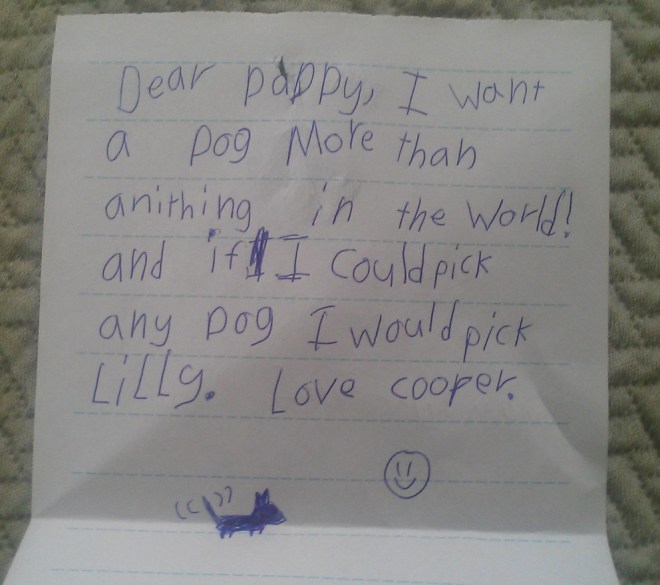 Dear pappy, I want
a Dog More than
anithing in the World!
and if I Could pick
any Dog I would pick
Lilly. Love cooper.